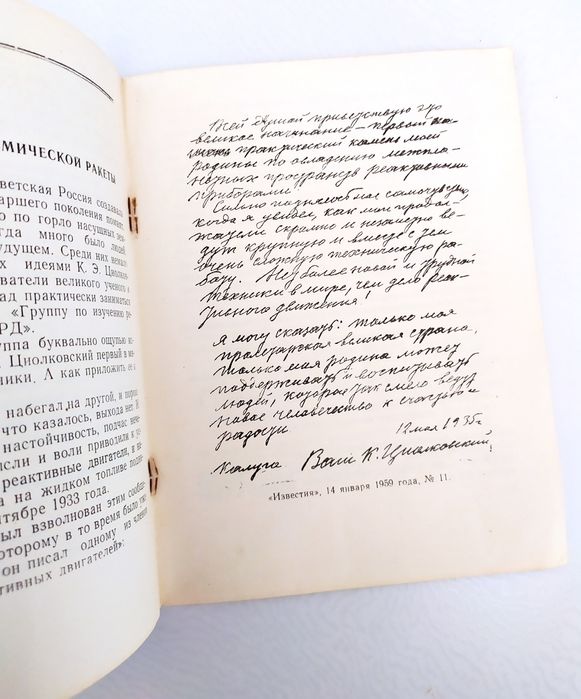 МИЧЕСКОЙ РАКЕТЫ
ветская Россия создавали
таршего поколения помнят,
о по горло насущных
гда много было людей,
удущем. Среди них
х идеями К. Э. Циолков-
ователи великого ученого
ад практически заниматься
«Группу по изучению ре-
РД».
уппа буквально ощупью
. Циолковский первый в
ники. А как приложить ее
набегал на другой, и порой
что казалось, выхода нет. И
настойчивость, подчас нече-
сли и воли приводили к
реактивные двигатели, а не-
а на жидком топливе подня-
нтябре 1933 года.
ыл взволнован этим сообще-
оторому в то время было уже
он писал одному из членов
тивных двигателей»:
Всей душой приветствую это
великое начинание — первый
практический камень моей
Родины по овладению межпла-
нетных пространств реактивными
приборами.
Сильно поднялось мое самочувствие,
когда я увидел, как мои продол-
жатели скромно и неспешно ве-
дут крупную и вместе с тем
очень сложную техническую ра-
боту. Нет более новой и трудной
техники в мире, чем дело реак-
тивного движения!
Я могу сказать: только моя
пролетарская великая страна,
только моя родина может
поддерживать и воспитывать
людей, которые так смело ведут
новое человечество к счастью и
радости
мая 1935 г
Калуга Ваш К. Циолковский
«Известия», 14 января 1959 года, № 11.